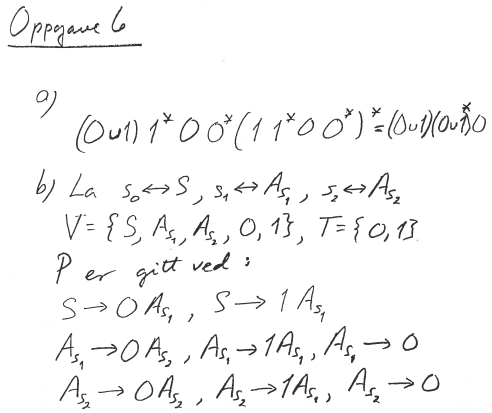 Oppgave 6
a)
(0∪1) 1* 0 0* (1 1* 0 0*)* = (0∪1)(0∪1)*0
b) La s₀↔S, s₁↔A_{s₁}, s₂↔A_{s₂}
V = {S, A_{s₁}, A_{s₂}, 0, 1}, T = {0, 1}
P er gitt ved:
S → 0 A_{s₁}, S → 1 A_{s₁}
A_{s₁} → 0 A_{s₂}, A_{s₁} → 1 A_{s₁}, A_{s₁} → 0
A_{s₂} → 0 A_{s₂}, A_{s₂} → 1 A_{s₁}, A_{s₂} → 0